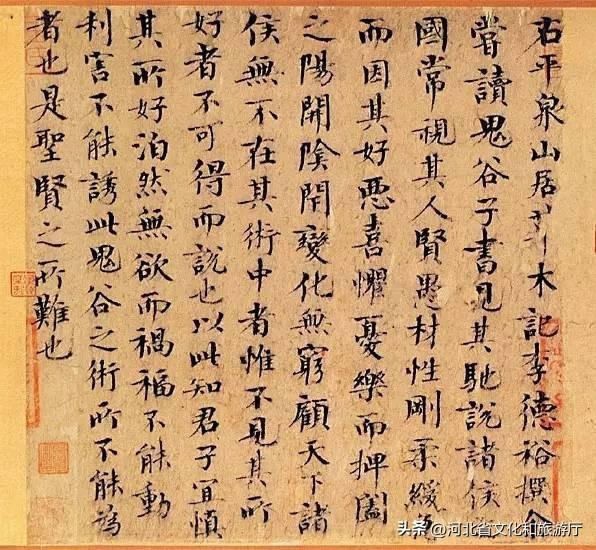 右平泉山居草木記李德裕撰余
嘗讀鬼谷子書見其馳說諸侯之
國常視其人賢愚材性剛柔緩急
而因其好惡喜懼憂樂而捭闔
之陽開陰閉變化無窮顧天下諸
侯無不在其術中者惟不見其所
好者不可得而說也以此知君子宜慎
其所好泊然無欲而禍福不能動
利害不能誘此鬼谷之術所不能為
者也是聖賢之所難也
头条 @河北省文化和旅游厅